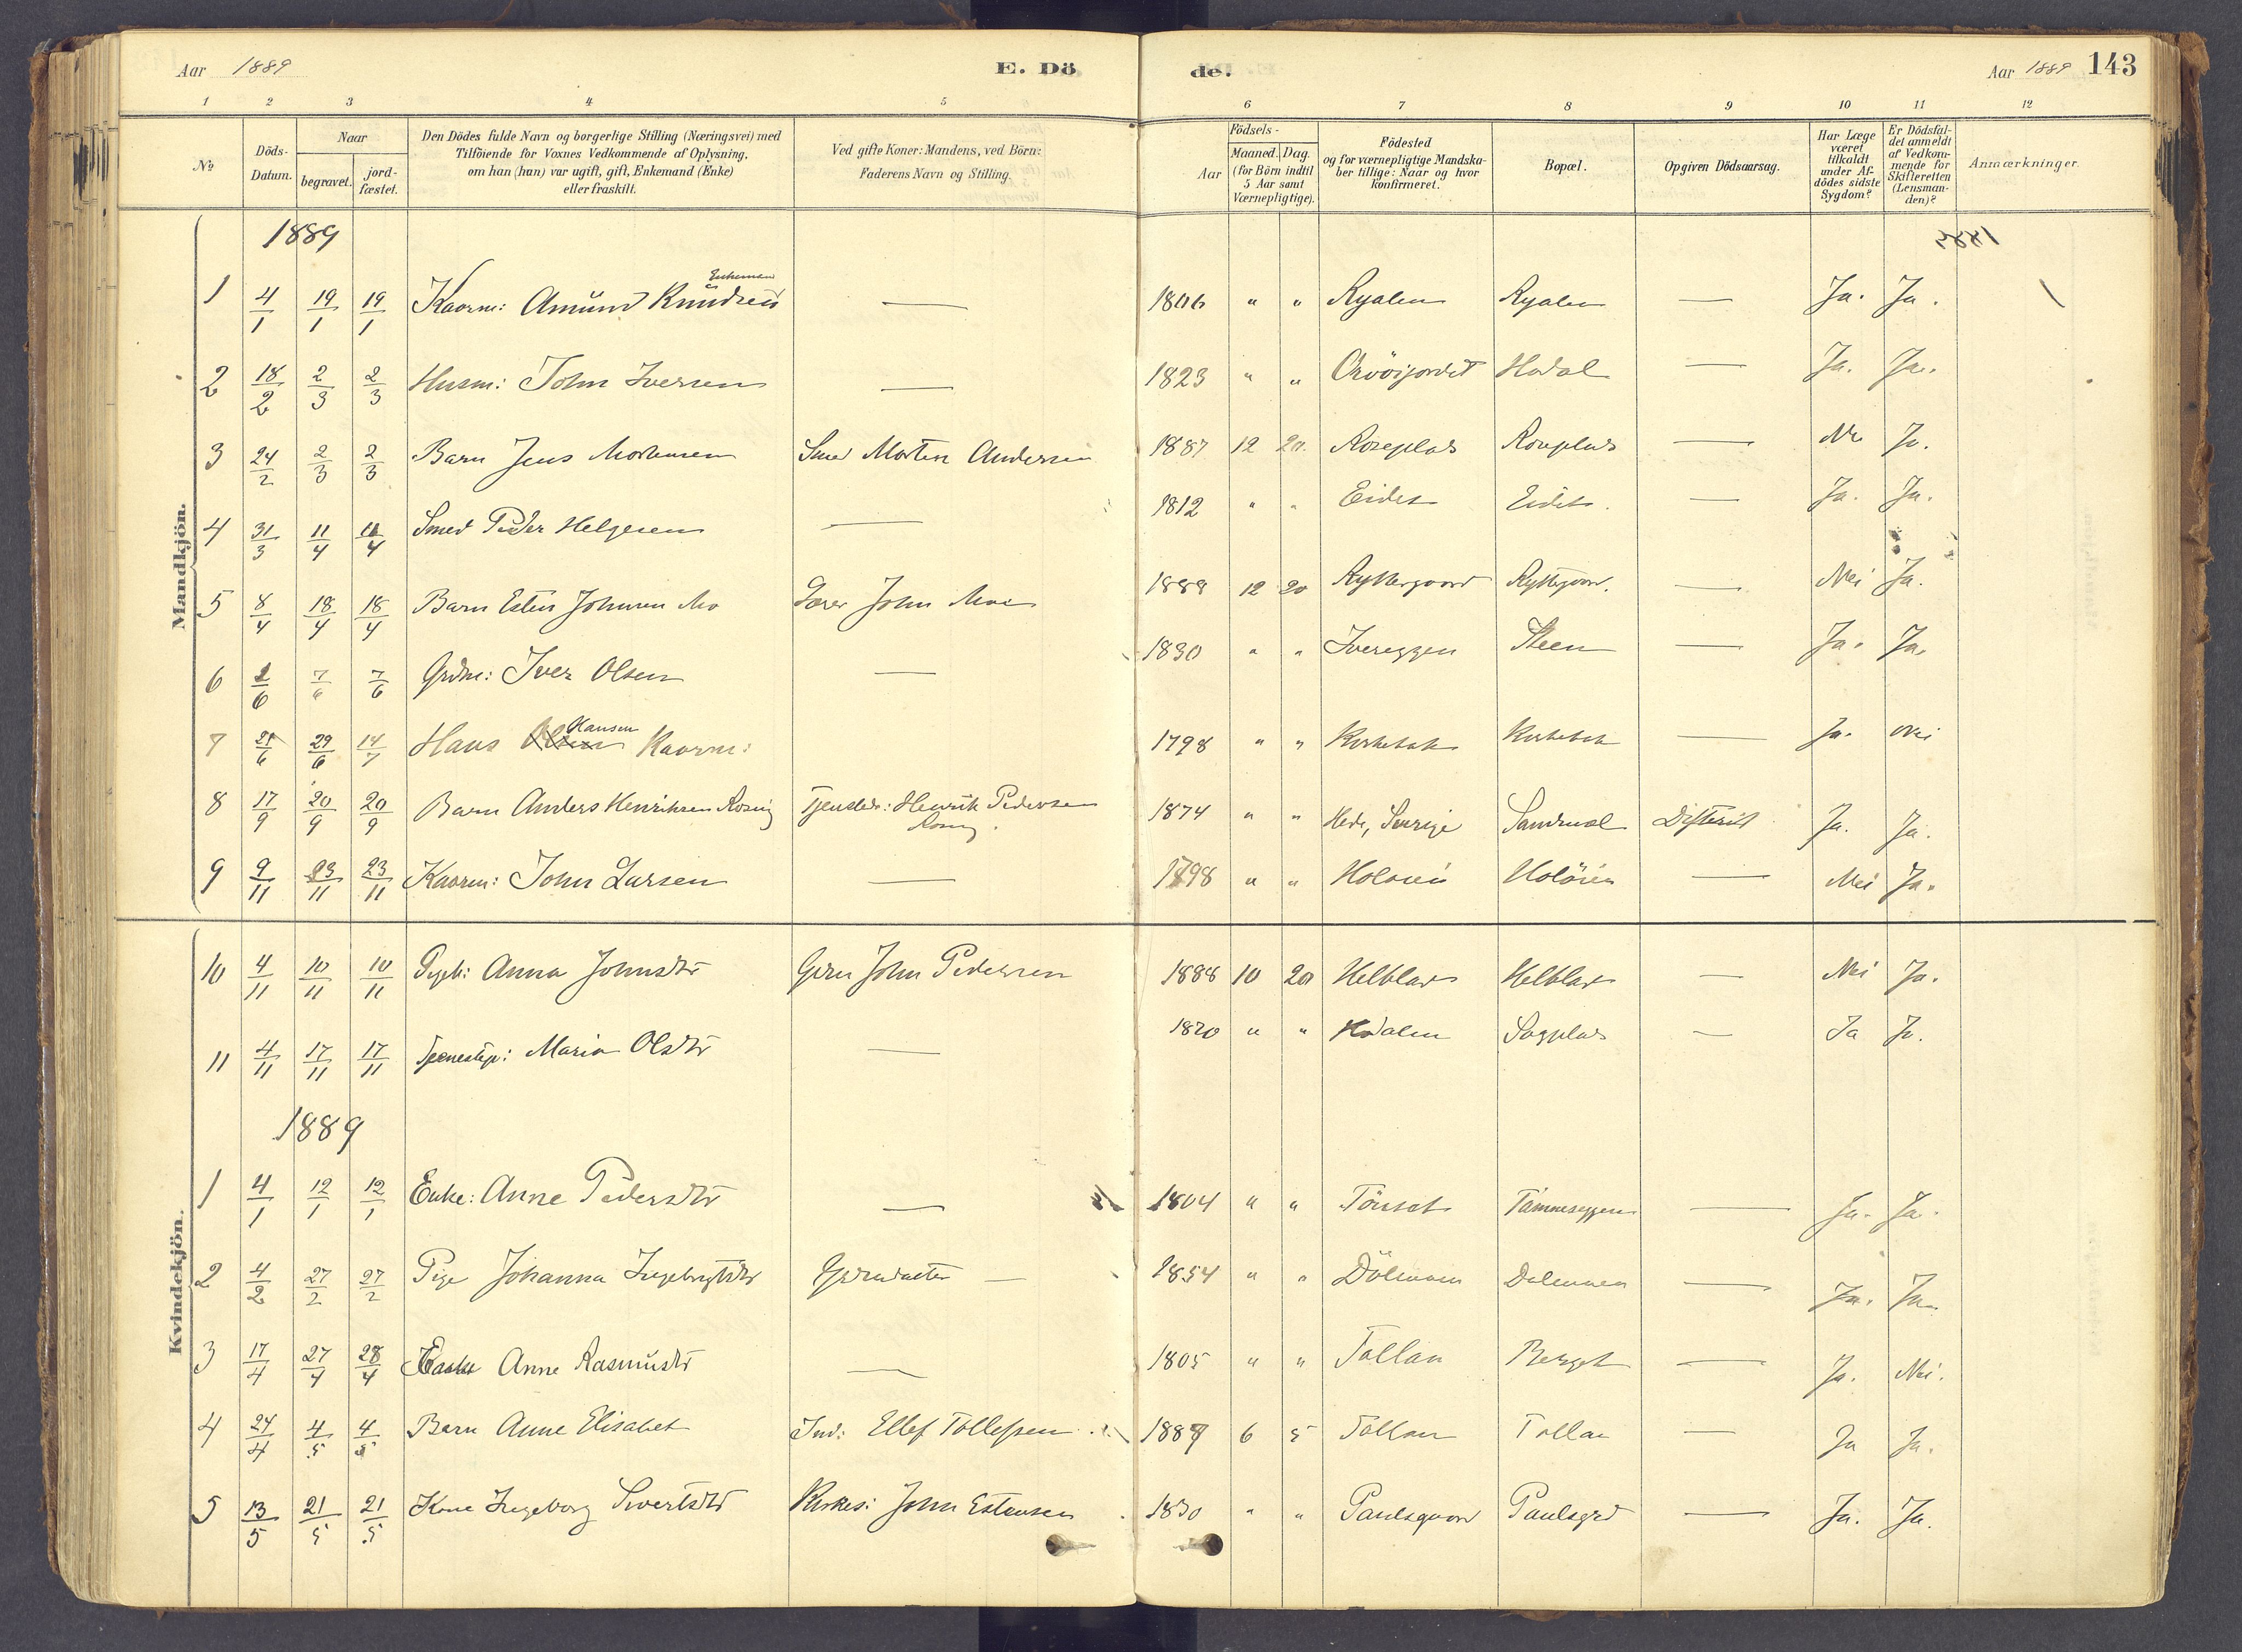 Aar 1889 E. Dö de. Aar 1889 143
1 2 3 4 5 6 7 8 9 10 11 12
№
Döds-
Datum.
Naar
begravet.
jord-
fæstet.
Den Dödes fulde Navn og borgerlige Stilling (Næringsvei) med
Tilföiende for Voxnes Vedkommende af Oplysning,
om han (hun) var ugift, gift, Enkemand (Enke)
eller fraskilt.
Ved gifte Koner: Mandens, ved Börn:
Faderens Navn og Stilling.
Födsels-
Aar
Maaned. Dag.
(for Börn indtil
5 Aar samt
Værnepligtige).
Födested
og for værnepligtige Mandska-
ber tillige: Naar og hvor
konfirmeret.
Bopæl.
Opgiven Dödsaarsag.
Har Læge
været
tilkaldt
under Af-
dödes sidste
Sygdom?
Er Dödsfal-
det anmeldt
af Vedkom-
mende for
Skifteretten
(Lensman-
den)?
Anmærkninger.
Mandkjön.
1889
Enkeman
1 4/1 19/1 19/1 Kaarm: Amund Knudsen — 1806 " " Ryalen Ryalen — Ja. Ja.
2 18/2 2/3 2/3 Husm: John Iversen — 1823 " " Hodal — Ja. Ja.
3 24/2 2/3 2/3 Barn Jens Mortensen Smed Morten Andersen 1887 12 20. Roseplas Roseplads — Nei Ja.
4 31/3 11/4 11/4 Smed Peder Helgesen — 1812 " " Eidet Eidet. — Ja. Ja.
5 8/4 18/4 18/4 Barn Esten Johnsen Mo John Moe 1888 12 20 Ryttergaard Ryttegaar. — Nei Ja.
6 1/6 7/6 7/6 Grdm: Iver Olsen — 1830 " " Ivereggen Steen — Ja. Ja.
Hansen
7 21/6 29/6 14/7 Hans Olsen Kaarm: 1798 " " Kirkebak Kirkebak — Ja. Nei
8 17/9 20/9 20/9 Barn Anders Henriksen Rosing Tjenstdr: Henrik Pedersen 1874 " " Hede, Sverige Sandmal Difterit Ja. Ja.
Rosing.
9 9/11 23/11 23/11 Kaarm: John Larsen — 1798 " " Holöien Holöien — Nei Ja.
10 4/11 10/11 10/11 Pigeb: Anna Johnsdtr Grdm John Pedersen 1888 10 20 Helblar Helblar — Nei Ja.
11 4/11 17/11 17/11 Tjenestep: Maria Olsdtr — 1820 " " Hodalen Sagplads — Ja Ja.
Kvindekjön.
1889
1 4/1 12/1 12/1 Enke: Anne Pedersdtr — 1804 " " Tönset Tamneseggen — Ja. Ja.
2 4/2 27/2 27/2 Pige Johanna Ingebrigtsdtr Grdmdatter — 1854 " " Dölmoen Dölmoen — Ja. Ja.
3 17/4 27/4 28/4 Enke Anne Rasmusdtr — 1805 " " Tollan Berget — Ja. Nei.
4 24/4 4/5 4/5 Barn Anne Elisabet Ind: Ellef Tollefsen 1887 6 5 Tollan Tollan — Ja Ja.
5 13/5 21/5 21/5 Kone Ingeborg Sivertsdtr Kirkes: John Estensen 1830 " " Paulsgaard Paulsgrd — Ja. Ja.